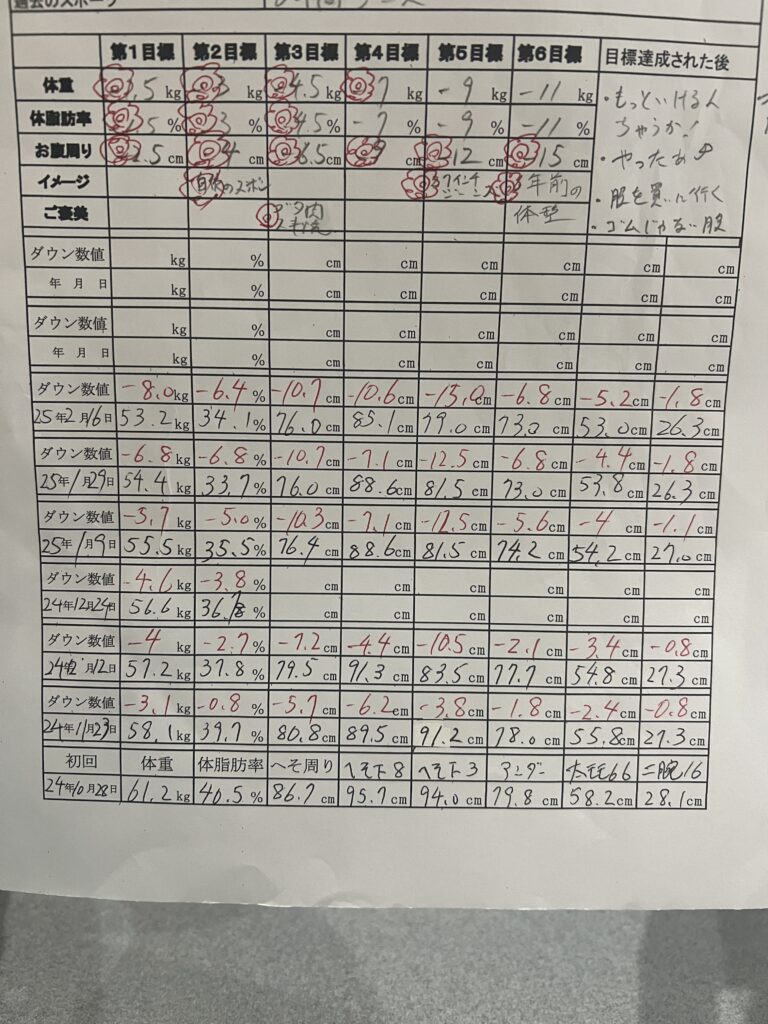 過去のスポーツ
第1目標 第2目標 第3目標 第4目標 第5目標 第6目標 目標達成された後
体重 1.5 kg 3 kg 4.5 kg 7 kg -9 kg -11 kg ・もっといけるん
体脂肪率 1.5 % 3 % 4.5 % -7 % -9 % -11 % ちゃうか!
お腹周り 2.5 cm 4 cm 6.5 cm 9 cm 12 cm 15 cm ・やったぁ
イメージ 年前の ・服を買いに行く
ご褒美 体型 ・ゴムじゃない服
ダウン数値 kg % cm cm cm cm cm cm
年 月 日 kg % cm cm cm cm cm cm
ダウン数値 kg % cm cm cm cm cm cm
年 月 日 kg % cm cm cm cm cm cm
ダウン数値 -8.0kg -6.4% -10.7cm -10.6cm -15.0cm -6.8cm -5.2cm -1.8cm
25年2月16日 53.2kg 34.1% 76.0cm 85.1cm 79.0cm 73.0cm 53.0cm 26.3cm
ダウン数値 -6.8kg -6.8% -10.7cm -7.1cm -12.5cm -6.8cm -4.4cm -1.8cm
25年1月29日 54.4kg 33.7% 76.0cm 88.6cm 81.5cm 73.0cm 53.8cm 26.3cm
ダウン数値 -5.7kg -5.0% -10.3cm -7.1cm -12.5cm -5.6cm -4cm -1.1cm
25年1月9日 55.5kg 35.5% 76.4cm 88.6cm 81.5cm 74.2cm 54.2cm 27.0cm
ダウン数値 -4.6kg -3.8% cm cm cm cm cm cm
24年12月24日 56.6kg 36.7% cm cm cm cm cm cm
ダウン数値 -4kg -2.7% -7.2cm -4.4cm -10.5cm -2.1cm -3.4cm -0.8cm
24年12月12日 57.2kg 37.8% 79.5cm 91.3cm 83.5cm 77.7cm 54.8cm 27.3cm
ダウン数値 -3.1kg -0.8% -5.7cm -6.2cm -3.8cm -1.8cm -2.4cm -0.8cm
24年11月23日 58.1kg 39.7% 80.8cm 89.5cm 91.2cm 78.0cm 55.8cm 27.3cm
初回 体重 体脂肪率 へそ周り へそ下8 へそ下3 アンダー 太もも66 二腕16
24年10月28日 61.2kg 40.5% 86.7cm 95.7cm 94.0cm 79.8cm 58.2cm 28.1cm